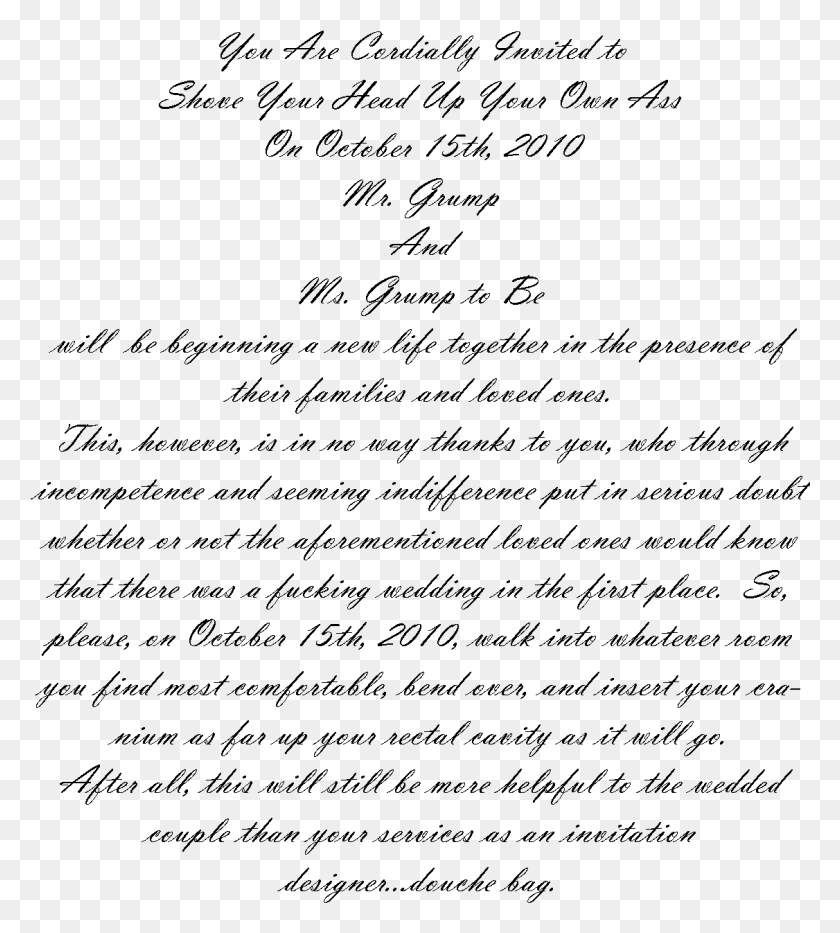 You Are Cordially Invited to
Shove Your Head Up Your Own Ass
On October 15th, 2010
Mr. Grump
And
Ms. Grump to Be
will be beginning a new life together in the presence of
their families and loved ones.
This, however, is in no way thanks to you, who through
incompetence and seeming indifference put in serious doubt
whether or not the aforementioned loved ones would know
that there was a fucking wedding in the first place. So,
please, on October 15th, 2010, walk into whatever room
you find most comfortable, bend over, and insert your cra-
nium as far up your rectal cavity as it will go.
After all, this will still be more helpful to the wedded
couple than your services as an invitation
designer...douche bag.